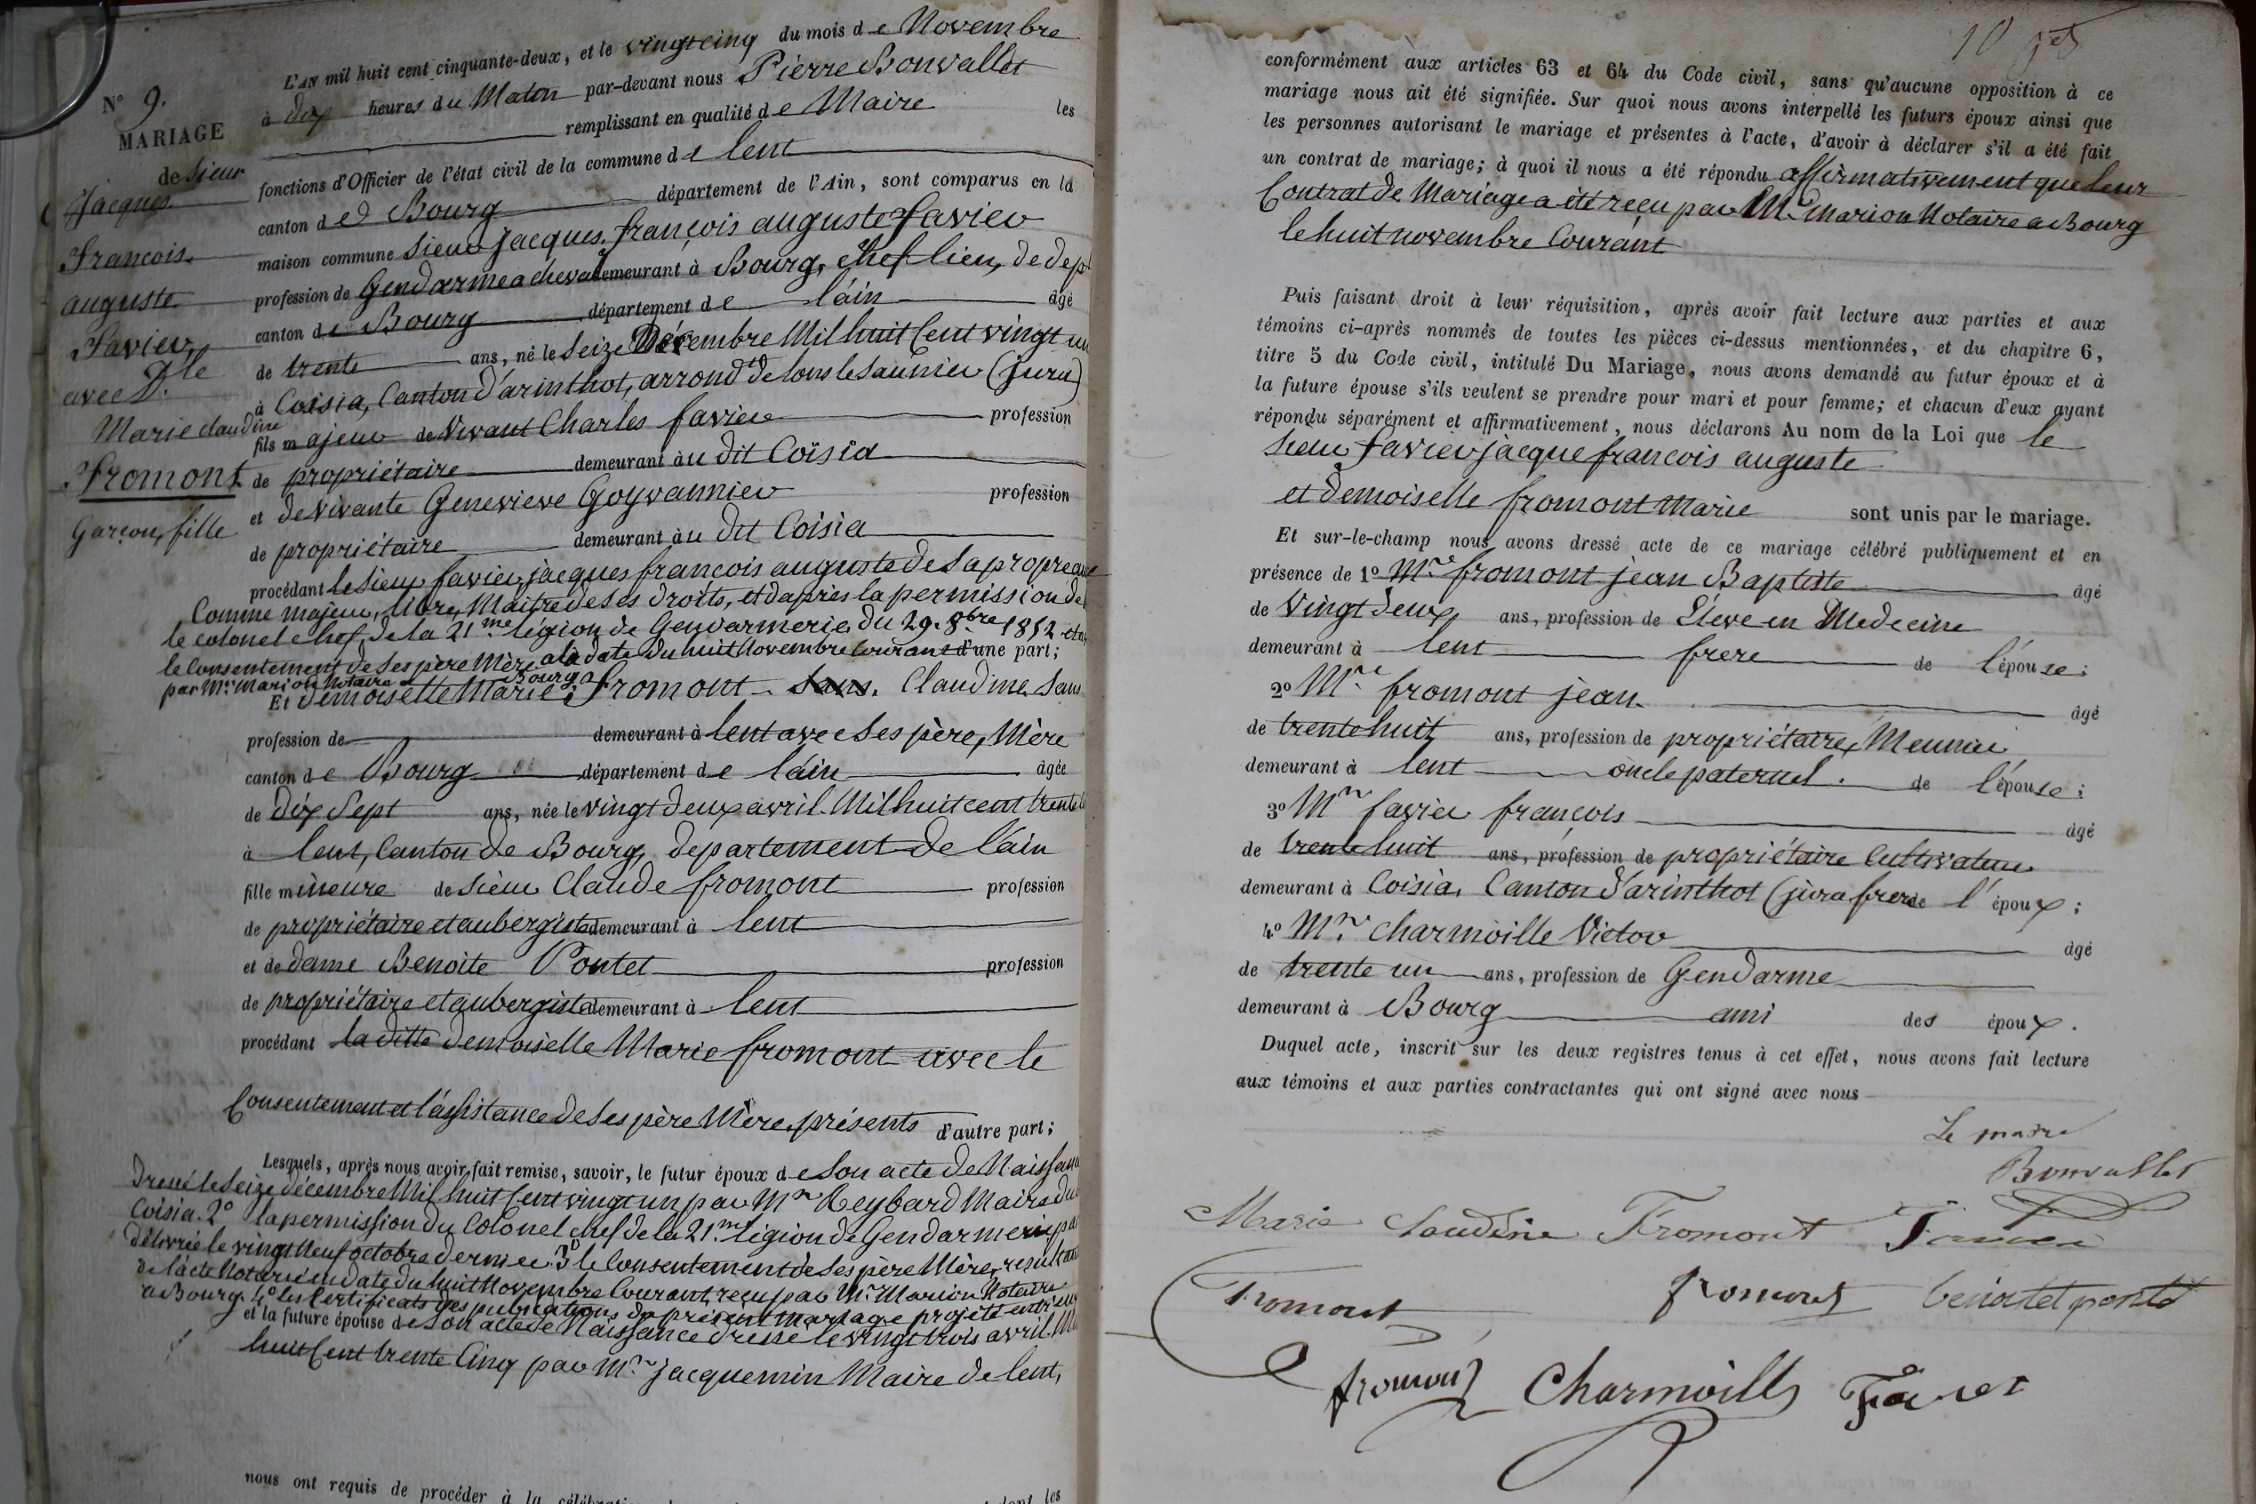 N° 9.
MARIAGE
de Sieur
Jacques
François
auguste
Favier
avec Dlle
Marie claudine
Fromont
Garçon, fille
L'AN mil huit cent cinquante-deux, et le vingt cinq du mois de Novembre
à dix heures du Matin par-devant nous Pierre Bonvallet
remplissant en qualité de Maire les
fonctions d'Officier de l'état civil de la commune de lent
canton de Bourg département de l'Ain, sont comparus en la
maison commune Sieur jacques françois auguste favier
profession de Gendarme a cheval demeurant à Bourg, chef lieu, de dept
canton de Bourg département de l'ain âgé
de trente ans, né le Seize Décembre Mil huit Cent vingt un
à Coisia, Canton d'arinthot, arrond.t de lons le Saunier (jura)
fils majeur de Vivant Charles favier profession
de propriétaire demeurant au dit Coisia
et de Vivante Genevieve Goyvannier profession
de propriétaire demeurant au dit Coisia
procédant le Sieur favier jacques francois auguste de Sa propre
Comme Majeur, libre, Maitre de Ses droits, et d'après la permission de
le colonel chef de la 21me légion de Gendarmerie du 29. 8bre 1852
le Consentement de Ses père Mère a la date du huit Novembre Courant d'une part;
par Mr. Marion Notaire a Bourg
Et Demoiselle Marie fromont Claudine Sans
profession de demeurant à lent avec Ses père, Mère
canton de Bourg département de l'ain âgée
de dix Sept ans, née le vingt deux avril Mil huit cent trente
à lent, Canton de Bourg, departement de l'ain
fille mineure de Sieur Claude fromont profession
de propriétaire et aubergiste demeurant à lent
et de dame Benoite Pontet profession
de propriétaire et aubergiste demeurant à lent
procédant la ditte demoiselle Marie fromont avec le
Consentement et l'assistance de Ses père Mère, présents d'autre part;
Lesquels, après nous avoir fait remise, savoir, le futur époux de Son acte de Naissance
Dressé le Seize décembre Mil huit Cent vingt un par Mr Reybard Maire du
Coisia. 2° la permission du Colonel chef de la 21me légion de Gendarmerie
délivrée le vingt Neuf octobre dernier 3° le Consentement de Ses père Mère, resultant
de l'acte Notarié en date du huit Novembre Courant, reçu par Mr Marion Notaire
a Bourg 4° les Certificats des publications du présent mariage projeté
et la future épouse de Son acte de Naissance dressé le vingt trois avril Mil
huit Cent trente Cinq par Mr. jacquemin Maire de lent,
nous ont requis de procéder à la
10
conformément aux articles 63 et 64 du Code civil, sans qu'aucune opposition à ce
mariage nous ait été signifiée. Sur quoi nous avons interpellé les futurs époux ainsi que
les personnes autorisant le mariage et présentes à l'acte, d'avoir à déclarer s'il a été fait
un contrat de mariage; à quoi il nous a été répondu affirmativement que leur
Contrat de Mariage a été reçu par Mr. Marion Notaire a Bourg
le huit novembre Courant
Puis faisant droit à leur réquisition, après avoir fait lecture aux parties et aux
témoins ci-après nommés de toutes les pièces ci-dessus mentionnées, et du chapitre 6,
titre 5 du Code civil, intitulé Du Mariage, nous avons demandé au futur époux et à
la future épouse s'ils veulent se prendre pour mari et pour femme; et chacun d'eux ayant
répondu séparément et affirmativement, nous déclarons Au nom de la Loi que le
Sieur favier jacque francois auguste
et demoiselle fromont Marie sont unis par le mariage.
Et sur-le-champ nous avons dressé acte de ce mariage célébré publiquement et en
présence de 1° Mr fromont jean Baptiste âgé
de Vingt deux ans, profession de Eleve en Medecine
demeurant à lent frere de l'épouse;
2° Mr fromont jean âgé
de trente huit ans, profession de propriétaire, Meunier
demeurant à lent oncle paternel. de l'épouse;
3° Mr favier françois âgé
de trente huit ans, profession de propriétaire Cultivateur
demeurant à Coisia, Canton d'arinthot (jura frere de l'époux;
4° Mr Charmoille Victor âgé
de trente un ans, profession de Gendarme
demeurant à Bourg ami des époux.
Duquel acte, inscrit sur les deux registres tenus à cet effet, nous avons fait lecture
aux témoins et aux parties contractantes qui ont signé avec nous
Le maire
Bonvallet
Marie Claudine Fromont Favier
Fromont fromont benoitet pontet
fromont Charmoille Favier